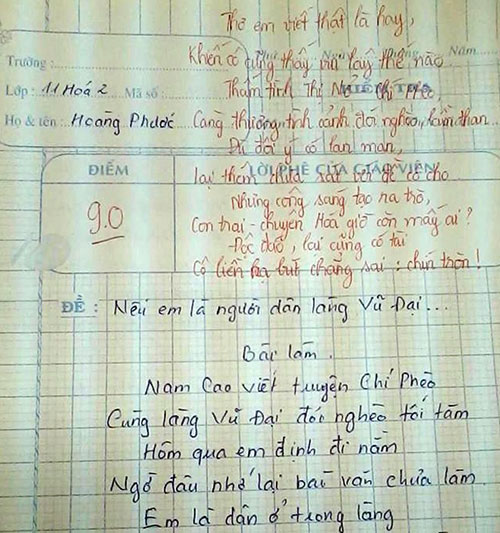 Thơ em viết thật là hay,
Khiến cô cũng thấy mà lây thế nào
Năm
Trường :
Thấm tình Thị Nở - Chí Phèo,
Lớp : 11 Hoá 2 Mã số :
Họ & tên : Hoàng Phước
Càng thương tình cảnh đói nghèo, lầm than...
Dù đôi ý có lan man,
ĐIỂM
LỜI PHÊ CỦA GIÁO VIÊN
9.0
lại thêm chưa sát với đề cô cho
Nhưng công sáng tạo ra trò,
Con trai - chuyên Hoá giờ còn mấy ai?
Đọc lại cũng có tài
Cô liền hạ bút chẳng sai : chín tròn!
ĐỀ : Nếu em là người dân làng Vũ Đại...
Bài làm.
Nam Cao viết truyện Chí Phèo
Cùng làng Vũ Đại đói nghèo tối tăm
Hôm qua em định đi nằm
Ngờ đâu nhớ lại bài văn chưa làm
Em là dân ở trong làng